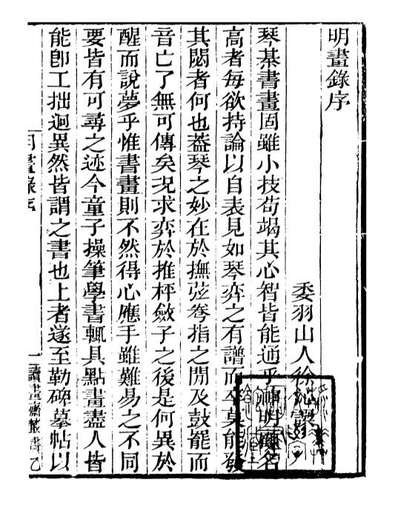 明畫錄序
委羽山人徐沁
琴棊書畫固雖小技苟竭其心智皆能通乎神明擅名
高者每欲持論以自表見如琴弈之有譜而卒莫能發
其閟者何也葢琴之妙在於撫弦弮指之閒及鼓罷而
音亡了無可傳矣況求弈於推枰斂子之後是何異於
醒而說夢乎惟書畫則不然得心應手雖難易之不同
要皆有可尋之迹今童子操筆學書輒具點畫盡人皆
能卽工拙迥異然皆謂之書也上者遂至勒碑摹帖以
明畫錄序
一
讀畫齋叢書乙